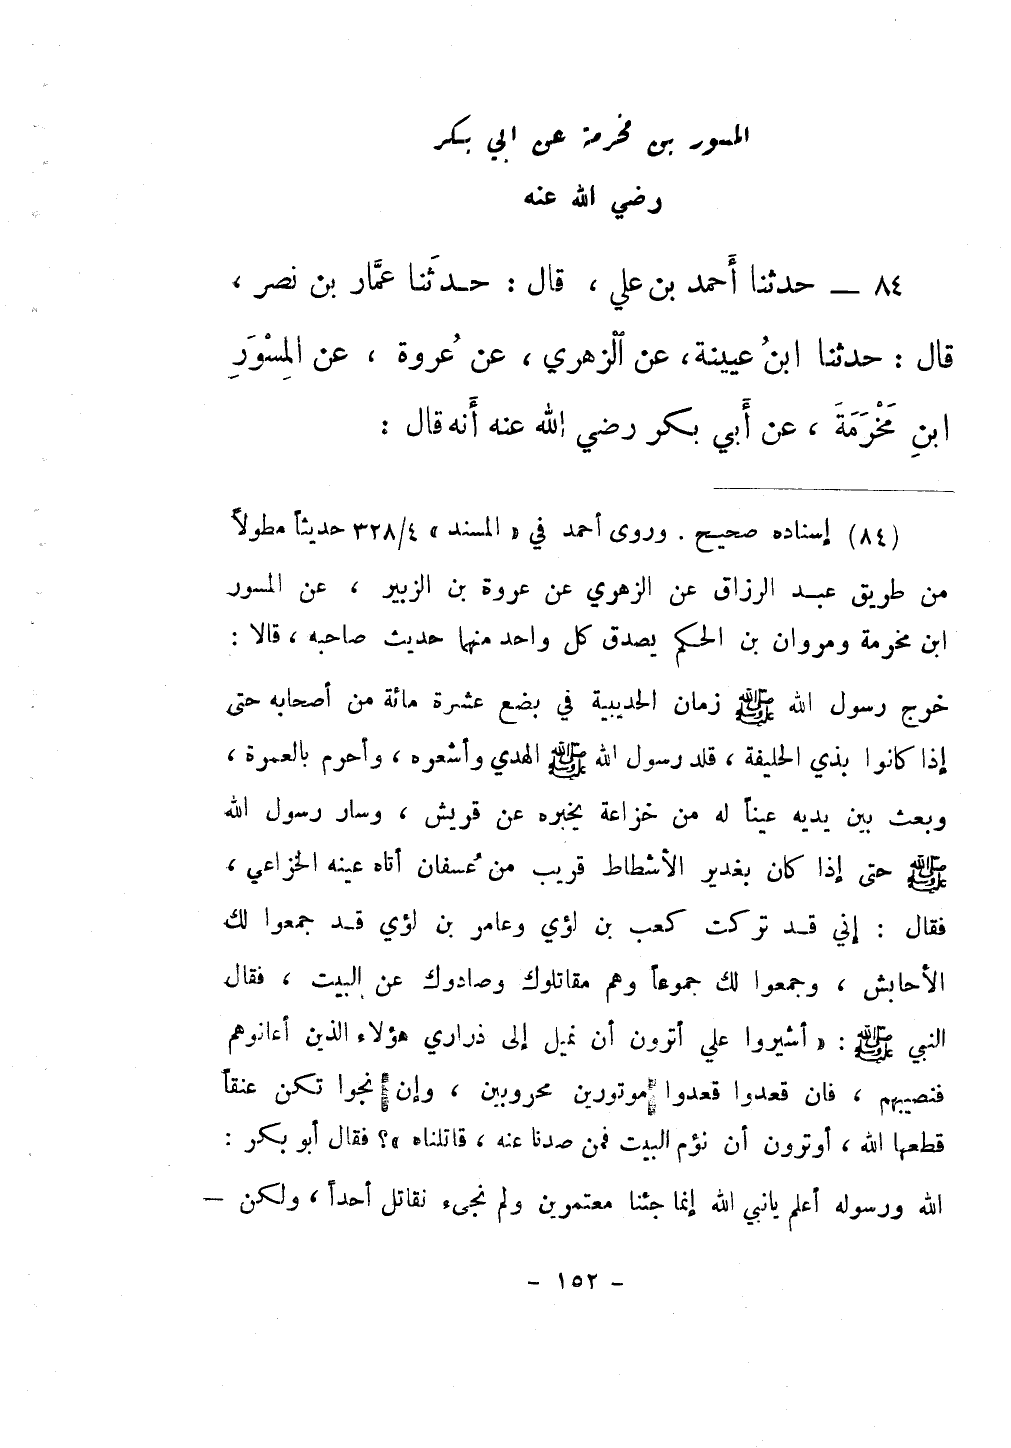 المسور بن مخرمة عن ابي بكر
رضي الله عنه
٨٤ ــ حدثنا أَحمد بن علي ، قال : حـدثَنا عمَّار بن نصر ،
قال : حدثنا ابنُ عيينة، عن الزهري ، عن عُروة ، عن المِسْوَرِ
ابنِ مَخْرَمَةَ ، عن أَبي بكر رضي الله عنه أَنه قال :
(٨٤) إسناده صحيح . وروى أحمد في « المسند » ٣٢٨/٤ حديثاً مطولاً
من طريق عبـد الرزاق عن الزهري عن عروة بن الزبير ، عن المسور
ابن مخرمة ومروان بن الحكم يصدق كل واحد منهما حديث صاحبه ، قالا :
خرج رسول الله ﷺ زمان الحديبية في بضع عشرة مائة من أصحابه حتى
إذا كانوا بذي الحليفة ، قلد رسول الله ﷺ الهدي وأشعره ، وأحرم بالعمرة ،
وبعث بين يديه عيناً له من خزاعة يخبره عن قريش ، وسار رسول الله
ﷺ حتى إذا كان بغدير الأشطاط قريب من عُسفان أتاه عينه الخزاعي ،
فقال : إني قـد تركت كعب بن لؤي وعامر بن لؤي قـد جمعوا لك
الأحابش ، وجمعوا لك جموعاً وهم مقاتلوك وصادوك عن البيت ، فقال
النبي ﷺ : « أشيروا علي أترون أن نميل إلى ذراري هؤلاء الذين أعانوهم
فنصيبهم ، فان قعدوا قعدوا موتورين محروبين ، وإن نجوا تكن عنقاً
قطعها الله ، أوترون أن نؤم البيت فمن صدنا عنه ، قاتلناه »؟ فقال أبو بكر :
الله ورسوله أعلم يانبي الله إنما جئنا معتمرين ولم نجىء نقاتل أحداً ، ولكن –
- ١٥٢ -